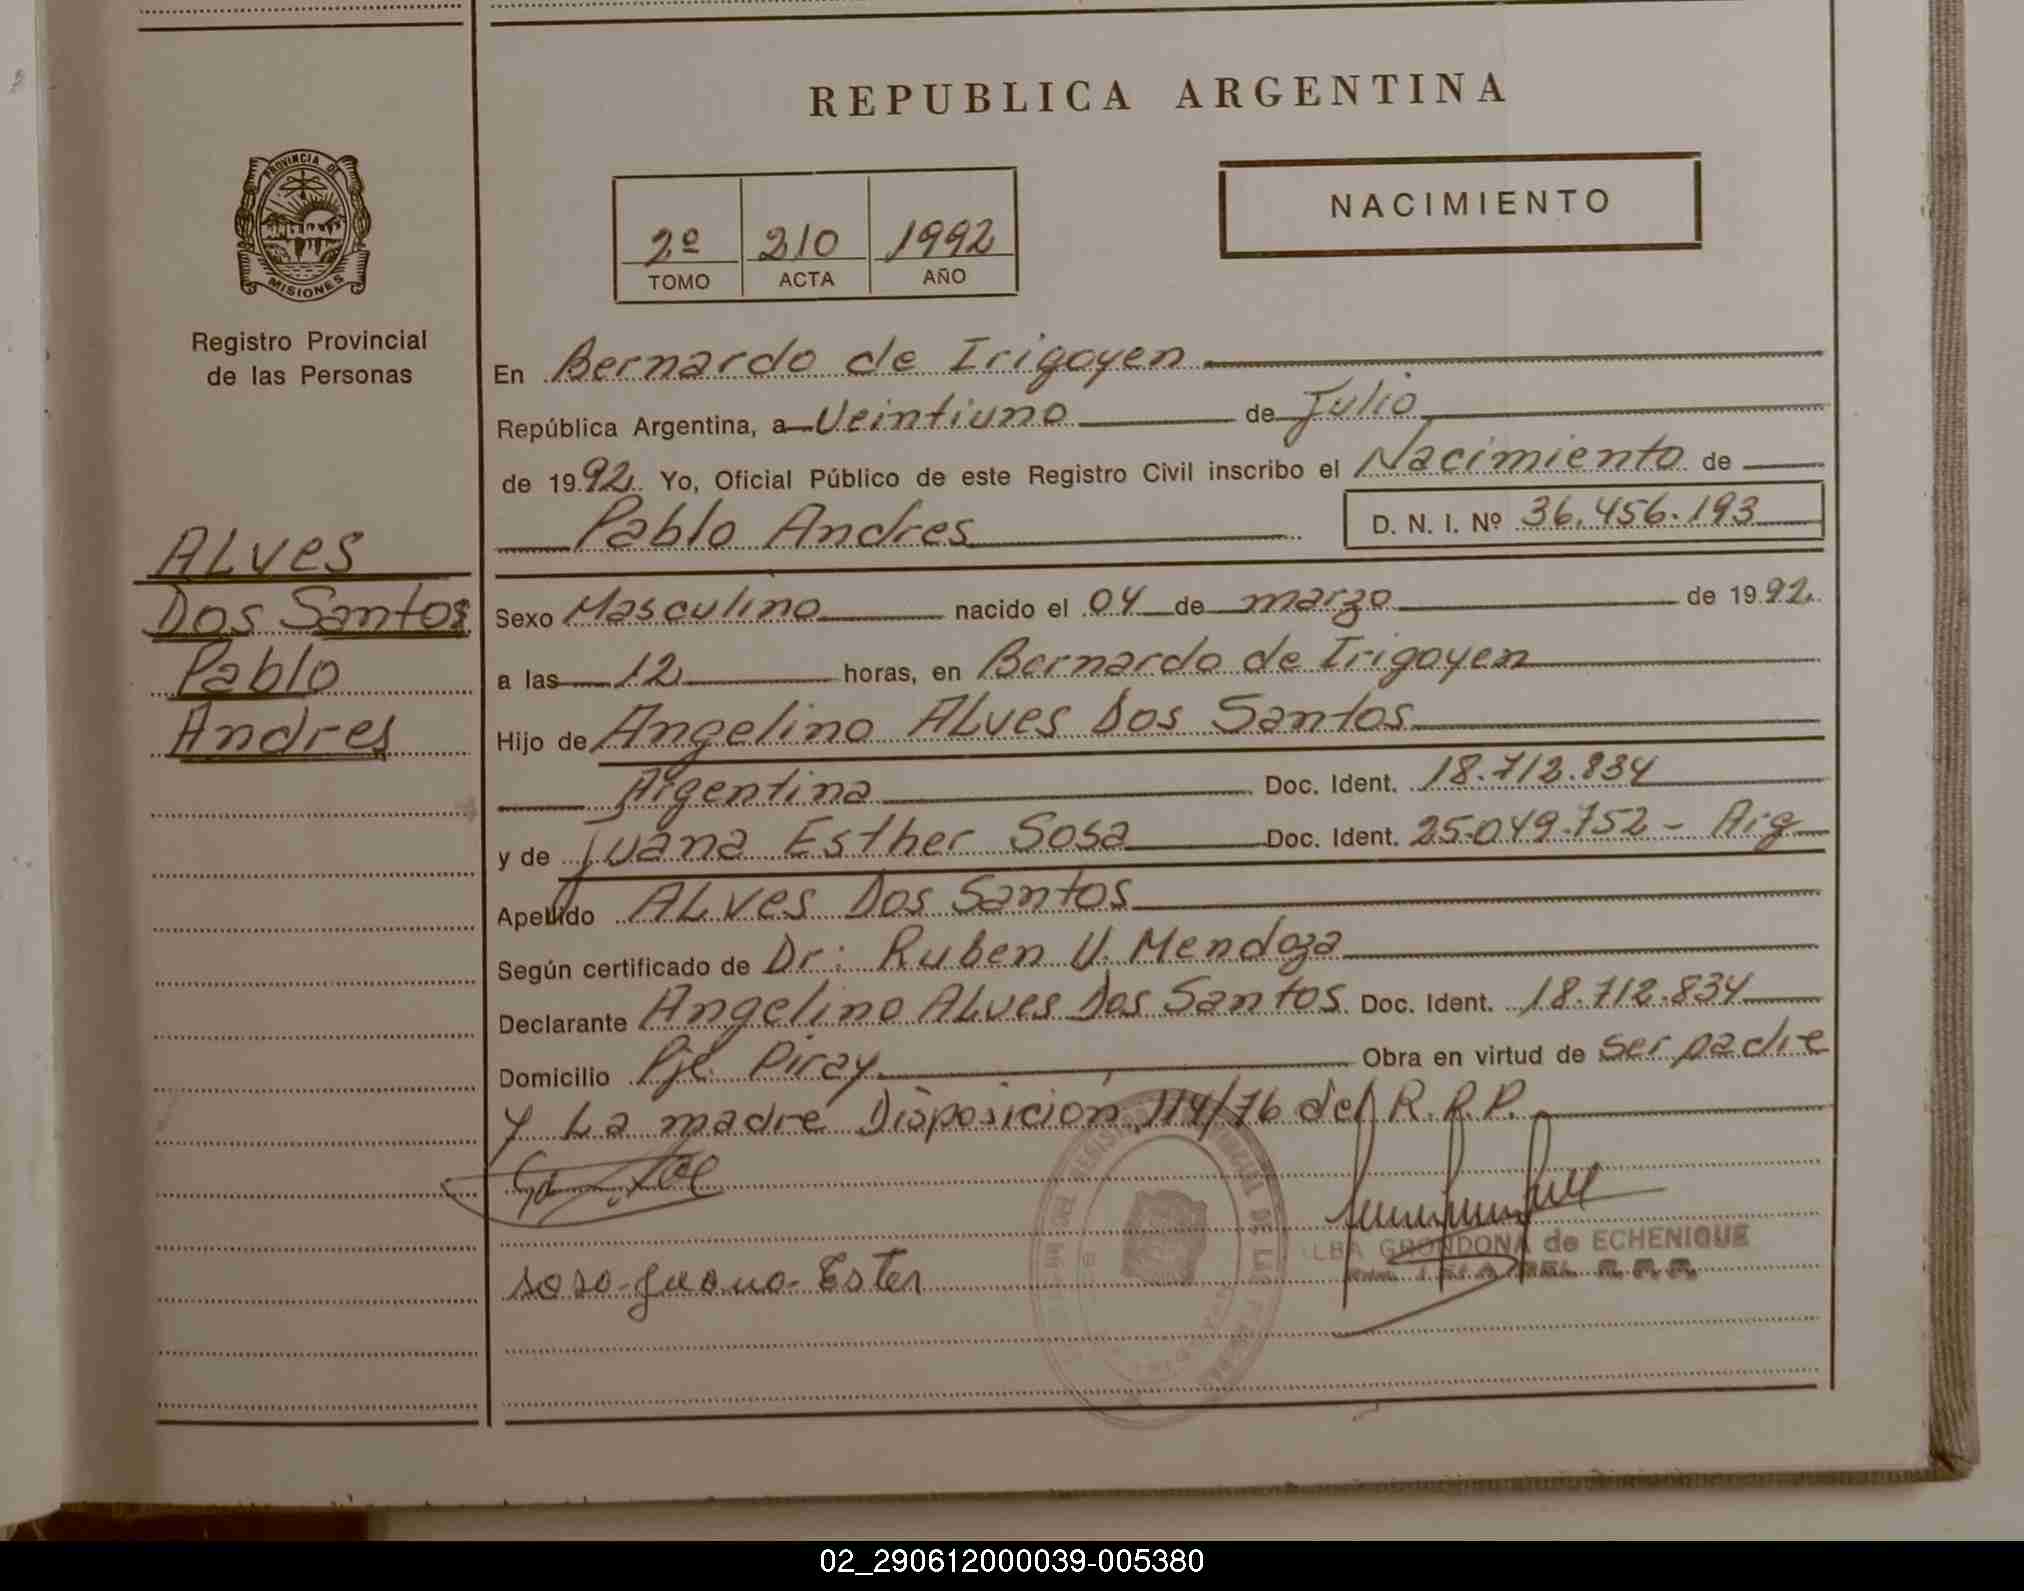 REPUBLICA ARGENTINA
PROVINCIA DE
MISIONES
Registro Provincial
de las Personas
2º 210 1992
TOMO ACTA AÑO
NACIMIENTO
ALVES
Dos Santos
Pablo
Andres
En Bernardo de Irigoyen
República Argentina, a Veintiuno de Julio
de 1992. Yo, Oficial Público de este Registro Civil inscribo el Nacimiento de
Pablo Andres D. N. I. Nº 36.456.193
Sexo Masculino nacido el 04 de marzo de 1992.
a las 12 horas, en Bernardo de Irigoyen
Hijo de Angelino ALves Dos Santos
Argentina Doc. Ident. 18.712.834
y de Juana Esther Sosa Doc. Ident. 25.049.752 - Arg
Apellido ALves Dos Santos
Según certificado de Dr: Ruben V. Mendoza
Declarante Angelino ALves Dos Santos Doc. Ident. 18.712.834
Domicilio Pje. Piray Obra en virtud de ser padre
y La madre Disposición 114/76 del R.R.P.
soso-Juana-Ester
ALBA GRONDONA de ECHENIQUE
02_290612000039-005380